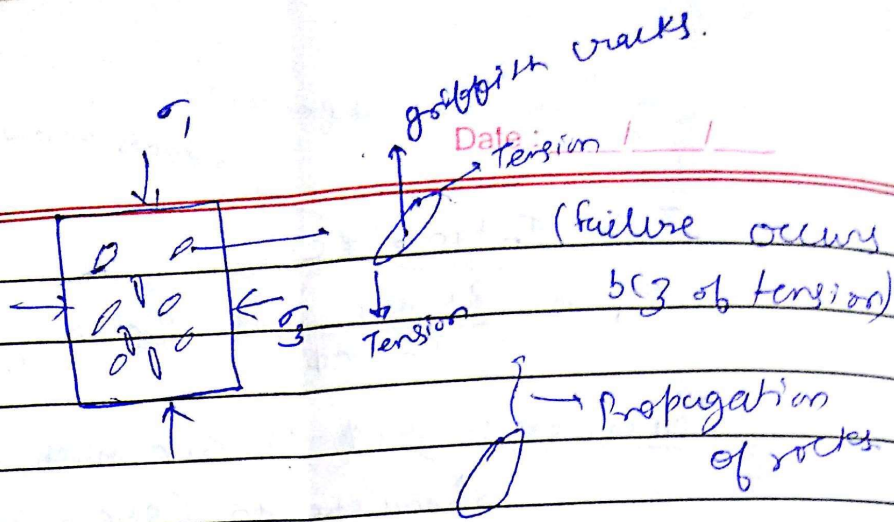 griffith cracks.
σ1
Date : / /
Tension
(failure occurs
bcz of tension)
σ3
Tension
Propagation
of rocks